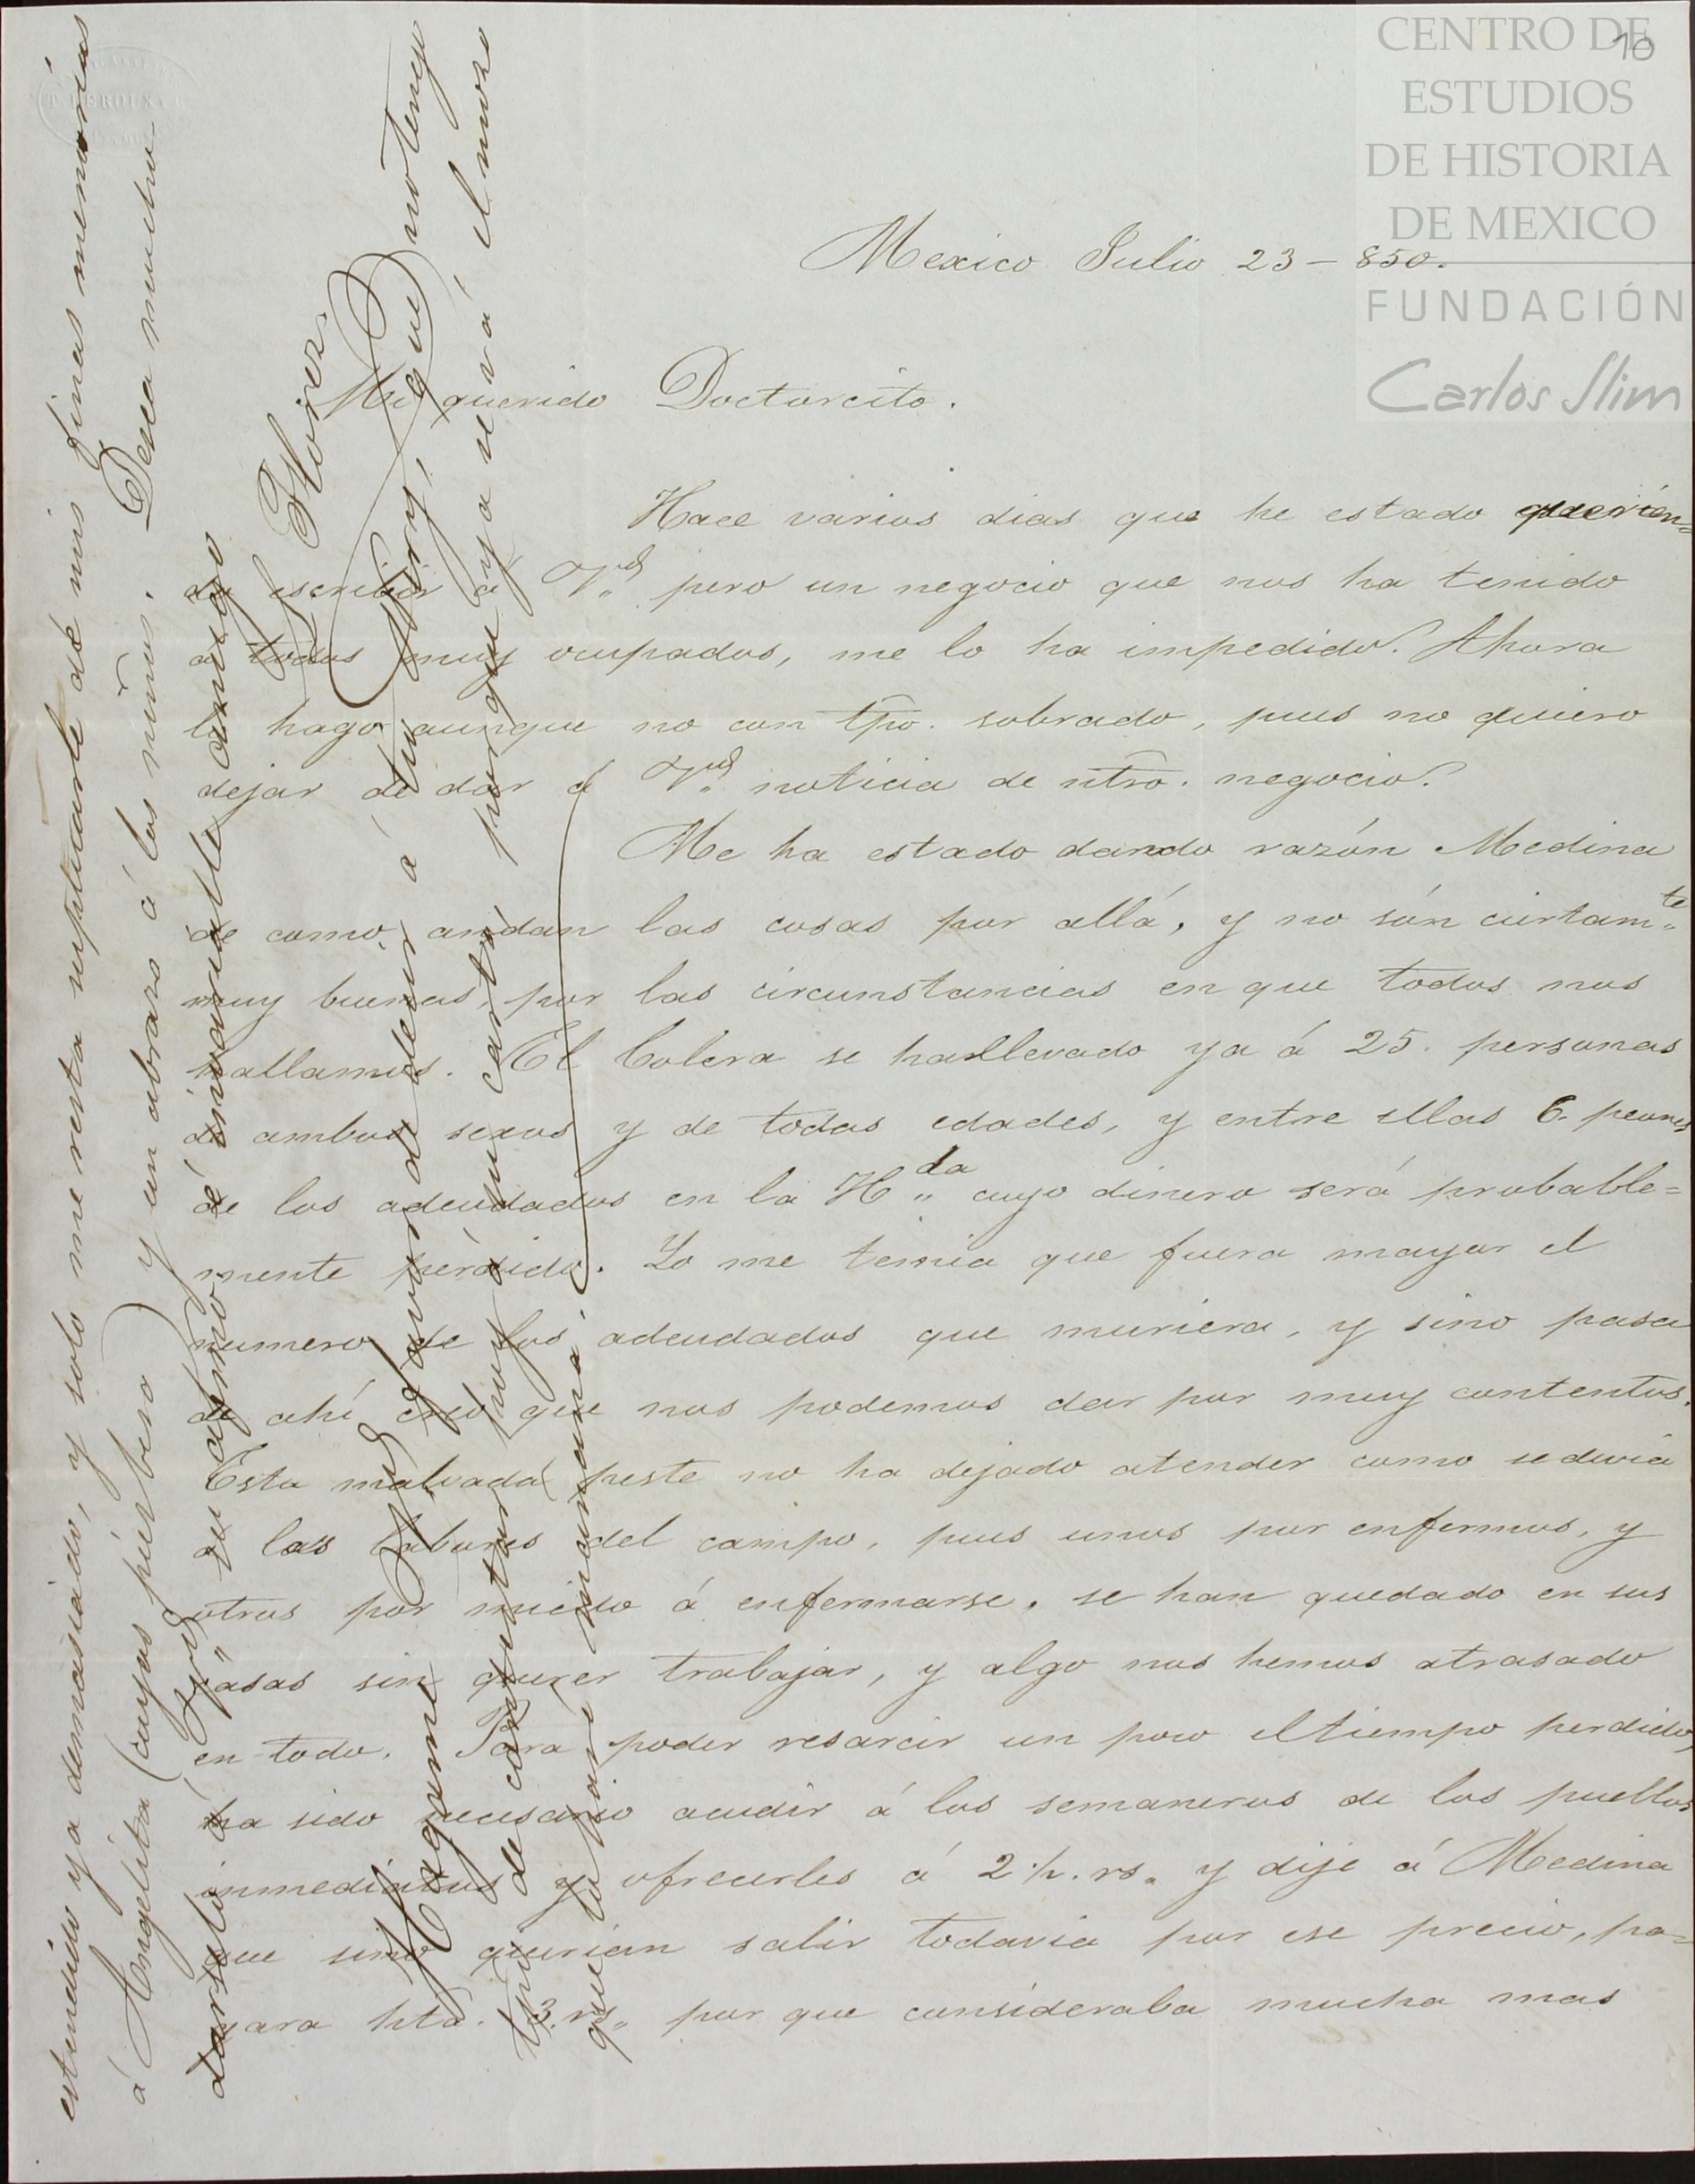 CENTRO DE
ESTUDIOS
DE HISTORIA
DE MEXICO
FUNDACIÓN
Carlos Slim
10
Mexico Julio 23 - 850.
Mi querido Doctorcito.
Hace varios dias que he estado querien=
do escribir á Vd. pero un negocio que nos ha tenido
á todos muy ocupados, me lo ha impedido. Ahora
lo hago aunque no con tpo. sobrado, pues no quiero
dejar de dar á Vd. noticia de ntro. negocio.
Me ha estado dando razón Medina
de como andan las cosas por allá, y no són ciertamte.
muy buenas, por las circunstancias en que todos nos
hallamos. El Colera se hallevado ya á 25. personas
de ambos sexos y de todas edades, y entre ellas 6. peones
de los adeudados en la Hda. cuyo dinero será probable=
mente pérdido. Yo me temia que fuera mayor el
numero de los adeudados que muriera, y sino pasa
de ahí creo que nos podemos dar por muy contentos.
Esta malvada peste no ha dejado atender como se devia
a las labores del campo, pues unos por enfermos, y
otros por miedo á enfermarse, se han quedado en sus
casas sin querer trabajar, y algo nos hemos atrasado
en todo. Para poder resarcir un poco eltiempo perdido,
ha sido necesario acudir á los semaneros de los pueblos
inmediatos y ofrecerles á 2½. rs. y dije á Medina
que sino querian salir todavia por ese precio, pa=
gara hta. 3. rs. por que consideraba mucha mas
estendido ya demasiado, y solo me resta suplicarle dé mis finas memorias
á Angelita (cuyos pies beso) y un abrazo á los niños. Desea mucho
darselo á Vd. su afmo. é invariable amigo
Flores
Hagame Vd. favor de decir á tu que no tengo
tpo. de contestar su carta por que ya se vá el mozo
que lo haré mañana.